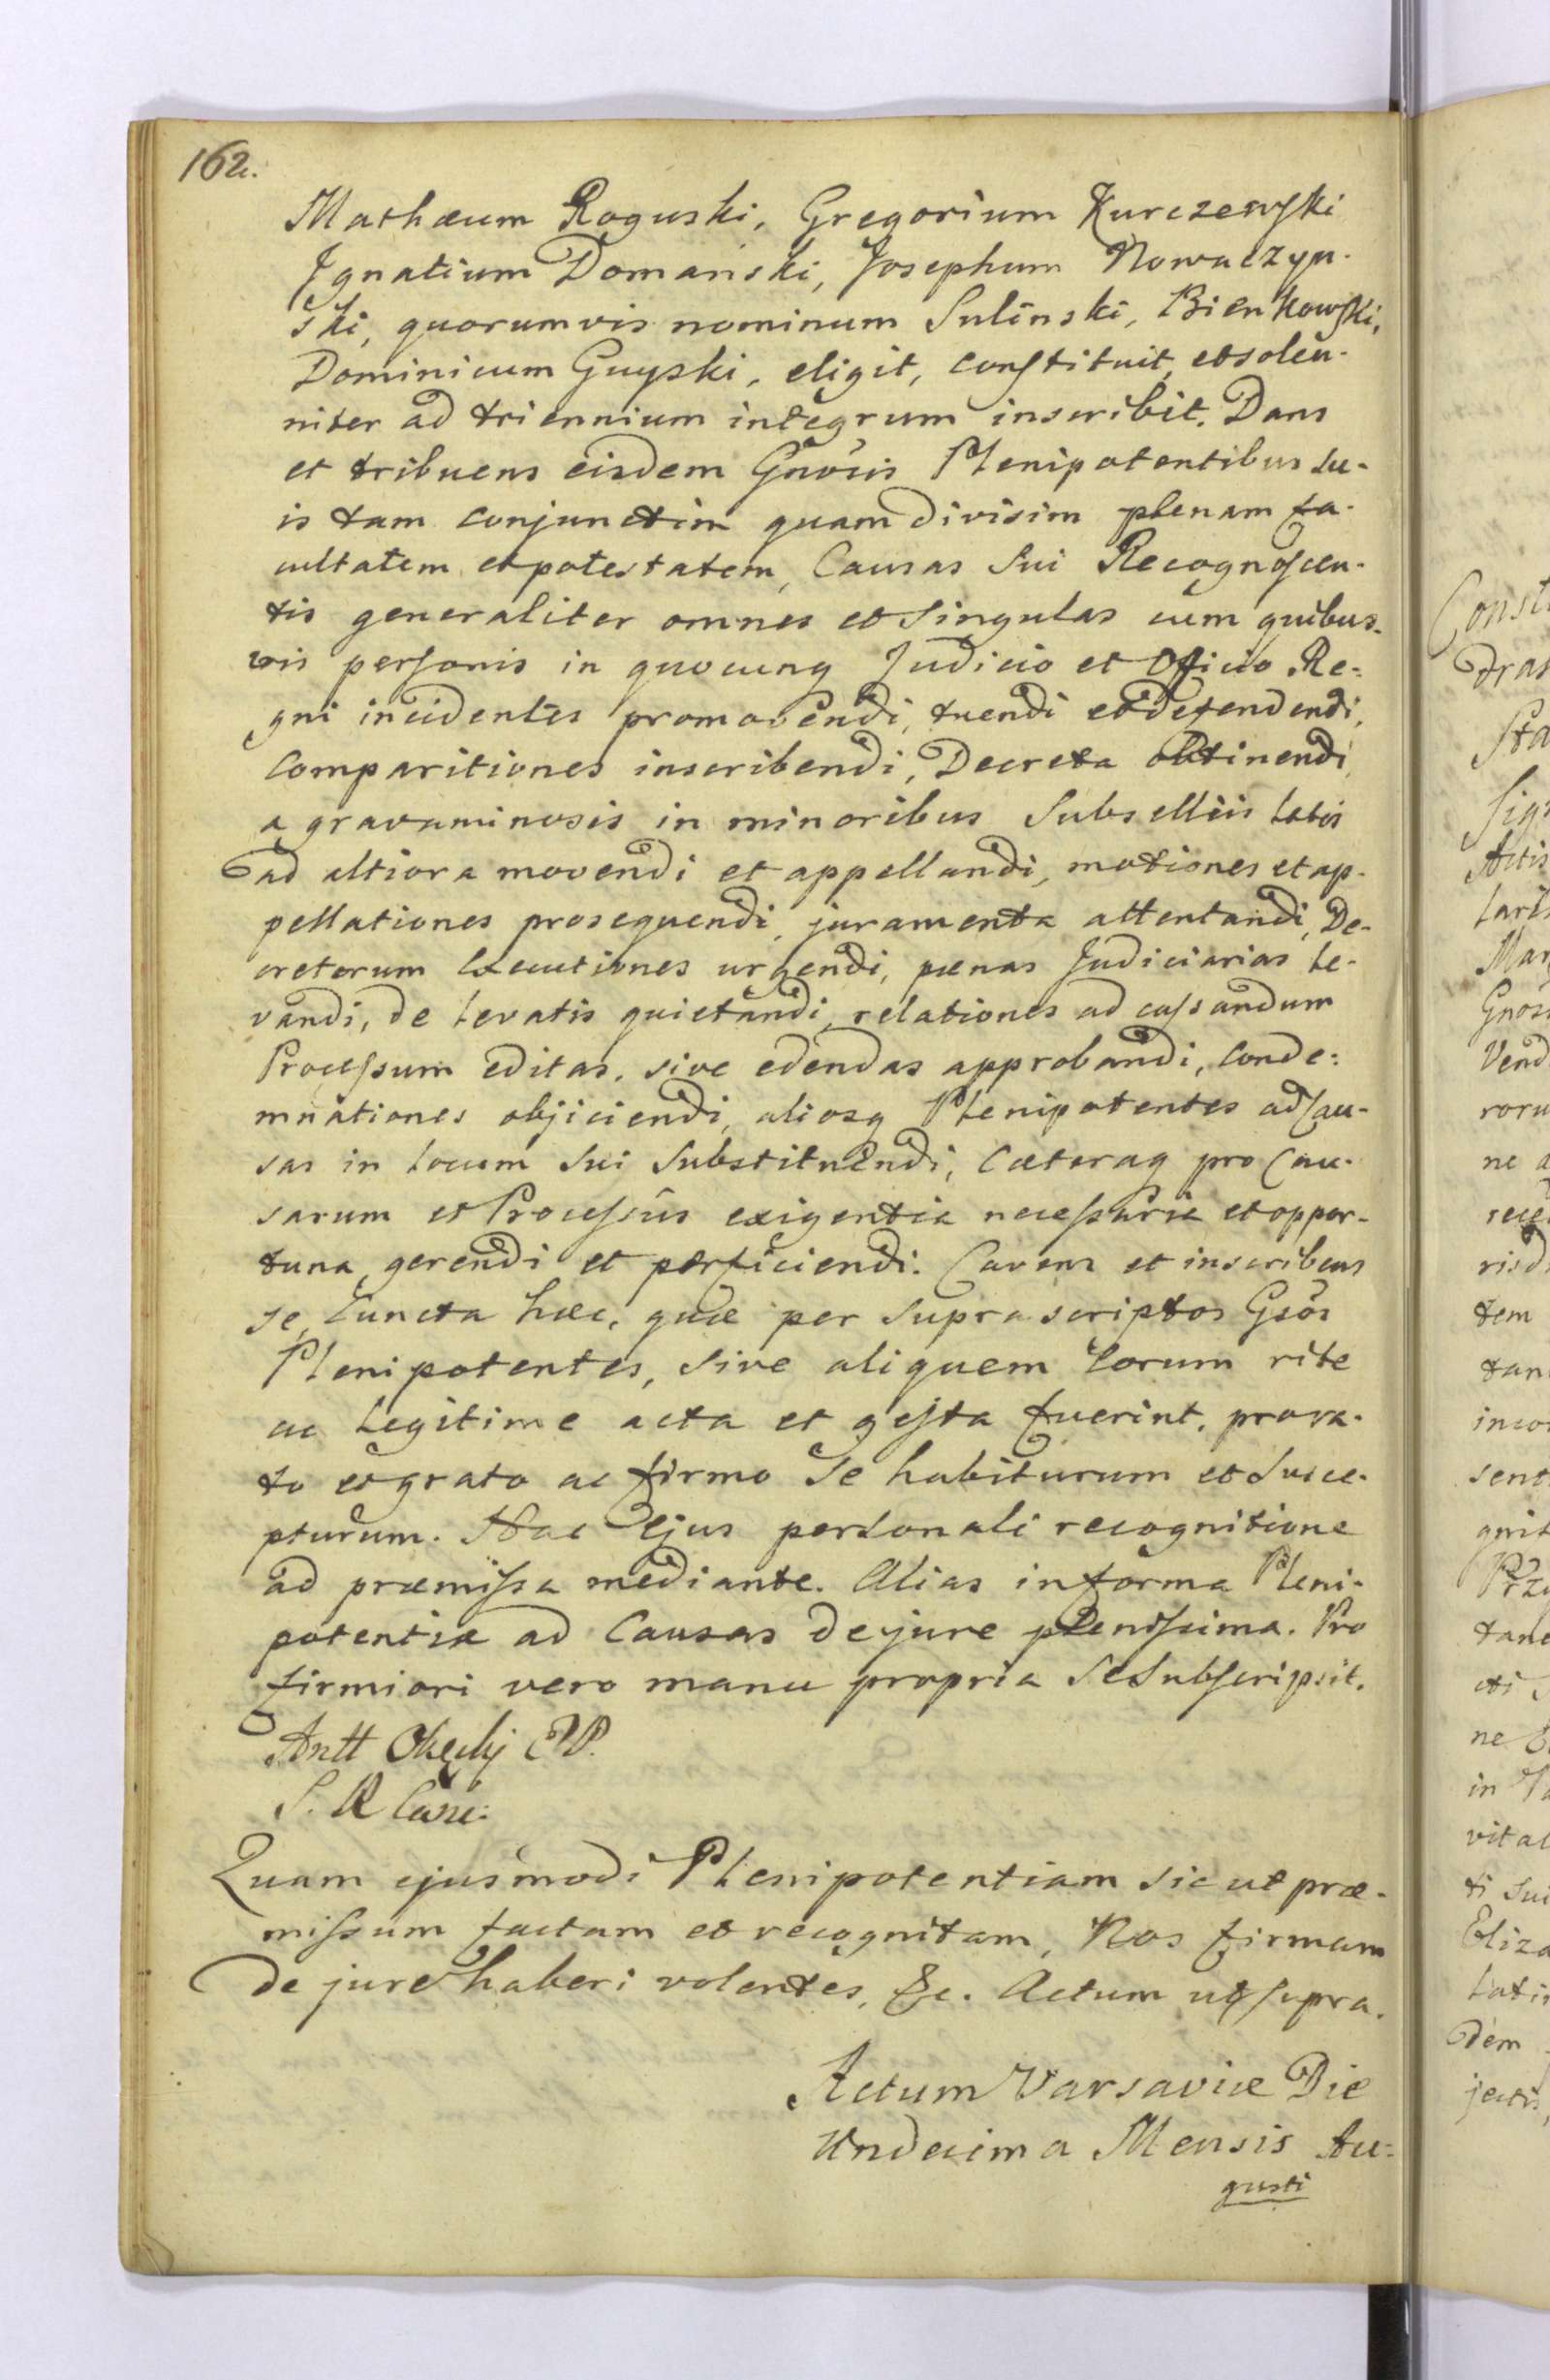 162.
Mathæum Roguski, Gregorium Kurczewski
Ignatium Domański, Josephum Nowaczyn-
ski, quorumvis nominum Sulinski, Bienkowski,
Dominicum Guyski, eligit, constituit, et solen-
niter ad triennium integrum inscribit. Dans
et tribuens eisdem Gnosis Plenipotentibus su-
is tam conjunctim quam divisim plenam fa-
cultatem et potestatem, Causas sui Recognoscen-
tis generaliter omnes et singulas cum quibus-
vis personis in quocunq Judicio et Officio Re-
gni incidentes promovendi, tuendi et defendendi,
Comparitiones inscribendi, Decreta obtinendi,
a gravaminosis in minoribus Subselliis latis
ad altiora movendi et appellandi, motiones et ap-
pellationes prosequendi, juramenta attentandi, De-
cretorum Executiones urgendi, pænas Judiciarias le-
vandi, de levatis quietandi, relationes ad cassandum
Processum editas, sive edendas approbandi, Conde-
mnationes objiciendi, aliosq Plenipotentes ad Cau-
sas in locum sui Substituendi, Cæteraq pro Cau-
sarum et Processûs exigentia necessaria et oppor-
tuna, gerendi et perficiendi. Cavens et inscribens
se, Cuncta hæc, quæ per suprascriptos Gsos
Plenipotentes, sive aliquem Eorum rite
ac legitime acta et gesta fuerint, pro ra-
to et grato ac firmo se habiturum et susce-
pturum. Hac Ejus personali recognitione
ad præmissa mediante. Alias in forma Pleni-
potentiæ ad Causas de jure plenissima. Pro
firmiori vero manu propria se subscripsit.
Antt Okęcki
Quam ejusmodi Plenipotentiam sic ut præ-
missum factam et recognitam, Nos firmam
de jure haberi volentes, &c. Actum ut supra.
Actum Varsaviæ Die
Undecima Mensis Au-
gusti
Const
tras
Sta
Sig
Actis
laris
Mar
Gnos
Vend
roru
ne a
rece
risd
tem
tan
inco
sent
gnit
Prz
tane
cti
ne
in
vital
ti sui
Eliza
lati
dem
jectis,